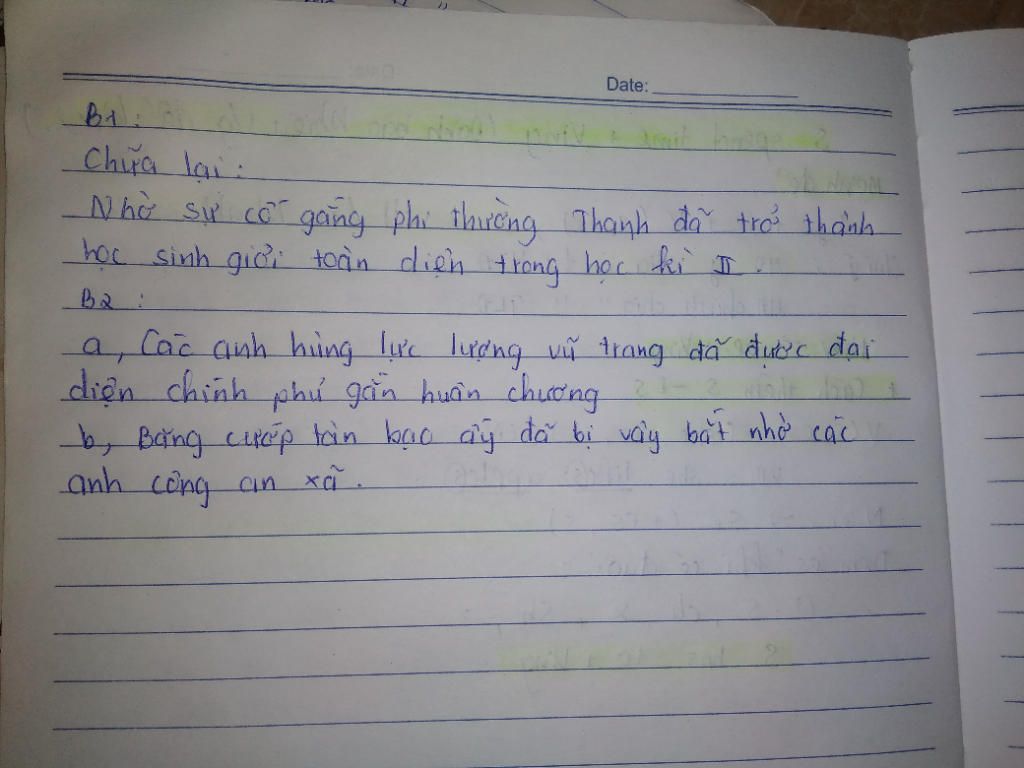 Date:
B1:
Chữa lại:
Nhờ sự cố gắng phi thường Thanh đã trở thành
học sinh giỏi toàn diện trong học kì II
B2:
a, Các anh hùng lực lượng vũ trang đã được đại
diện chính phủ gắn huân chương
b, Băng cướp tàn bạo ấy đã bị vây bắt nhờ các
anh công an xã.